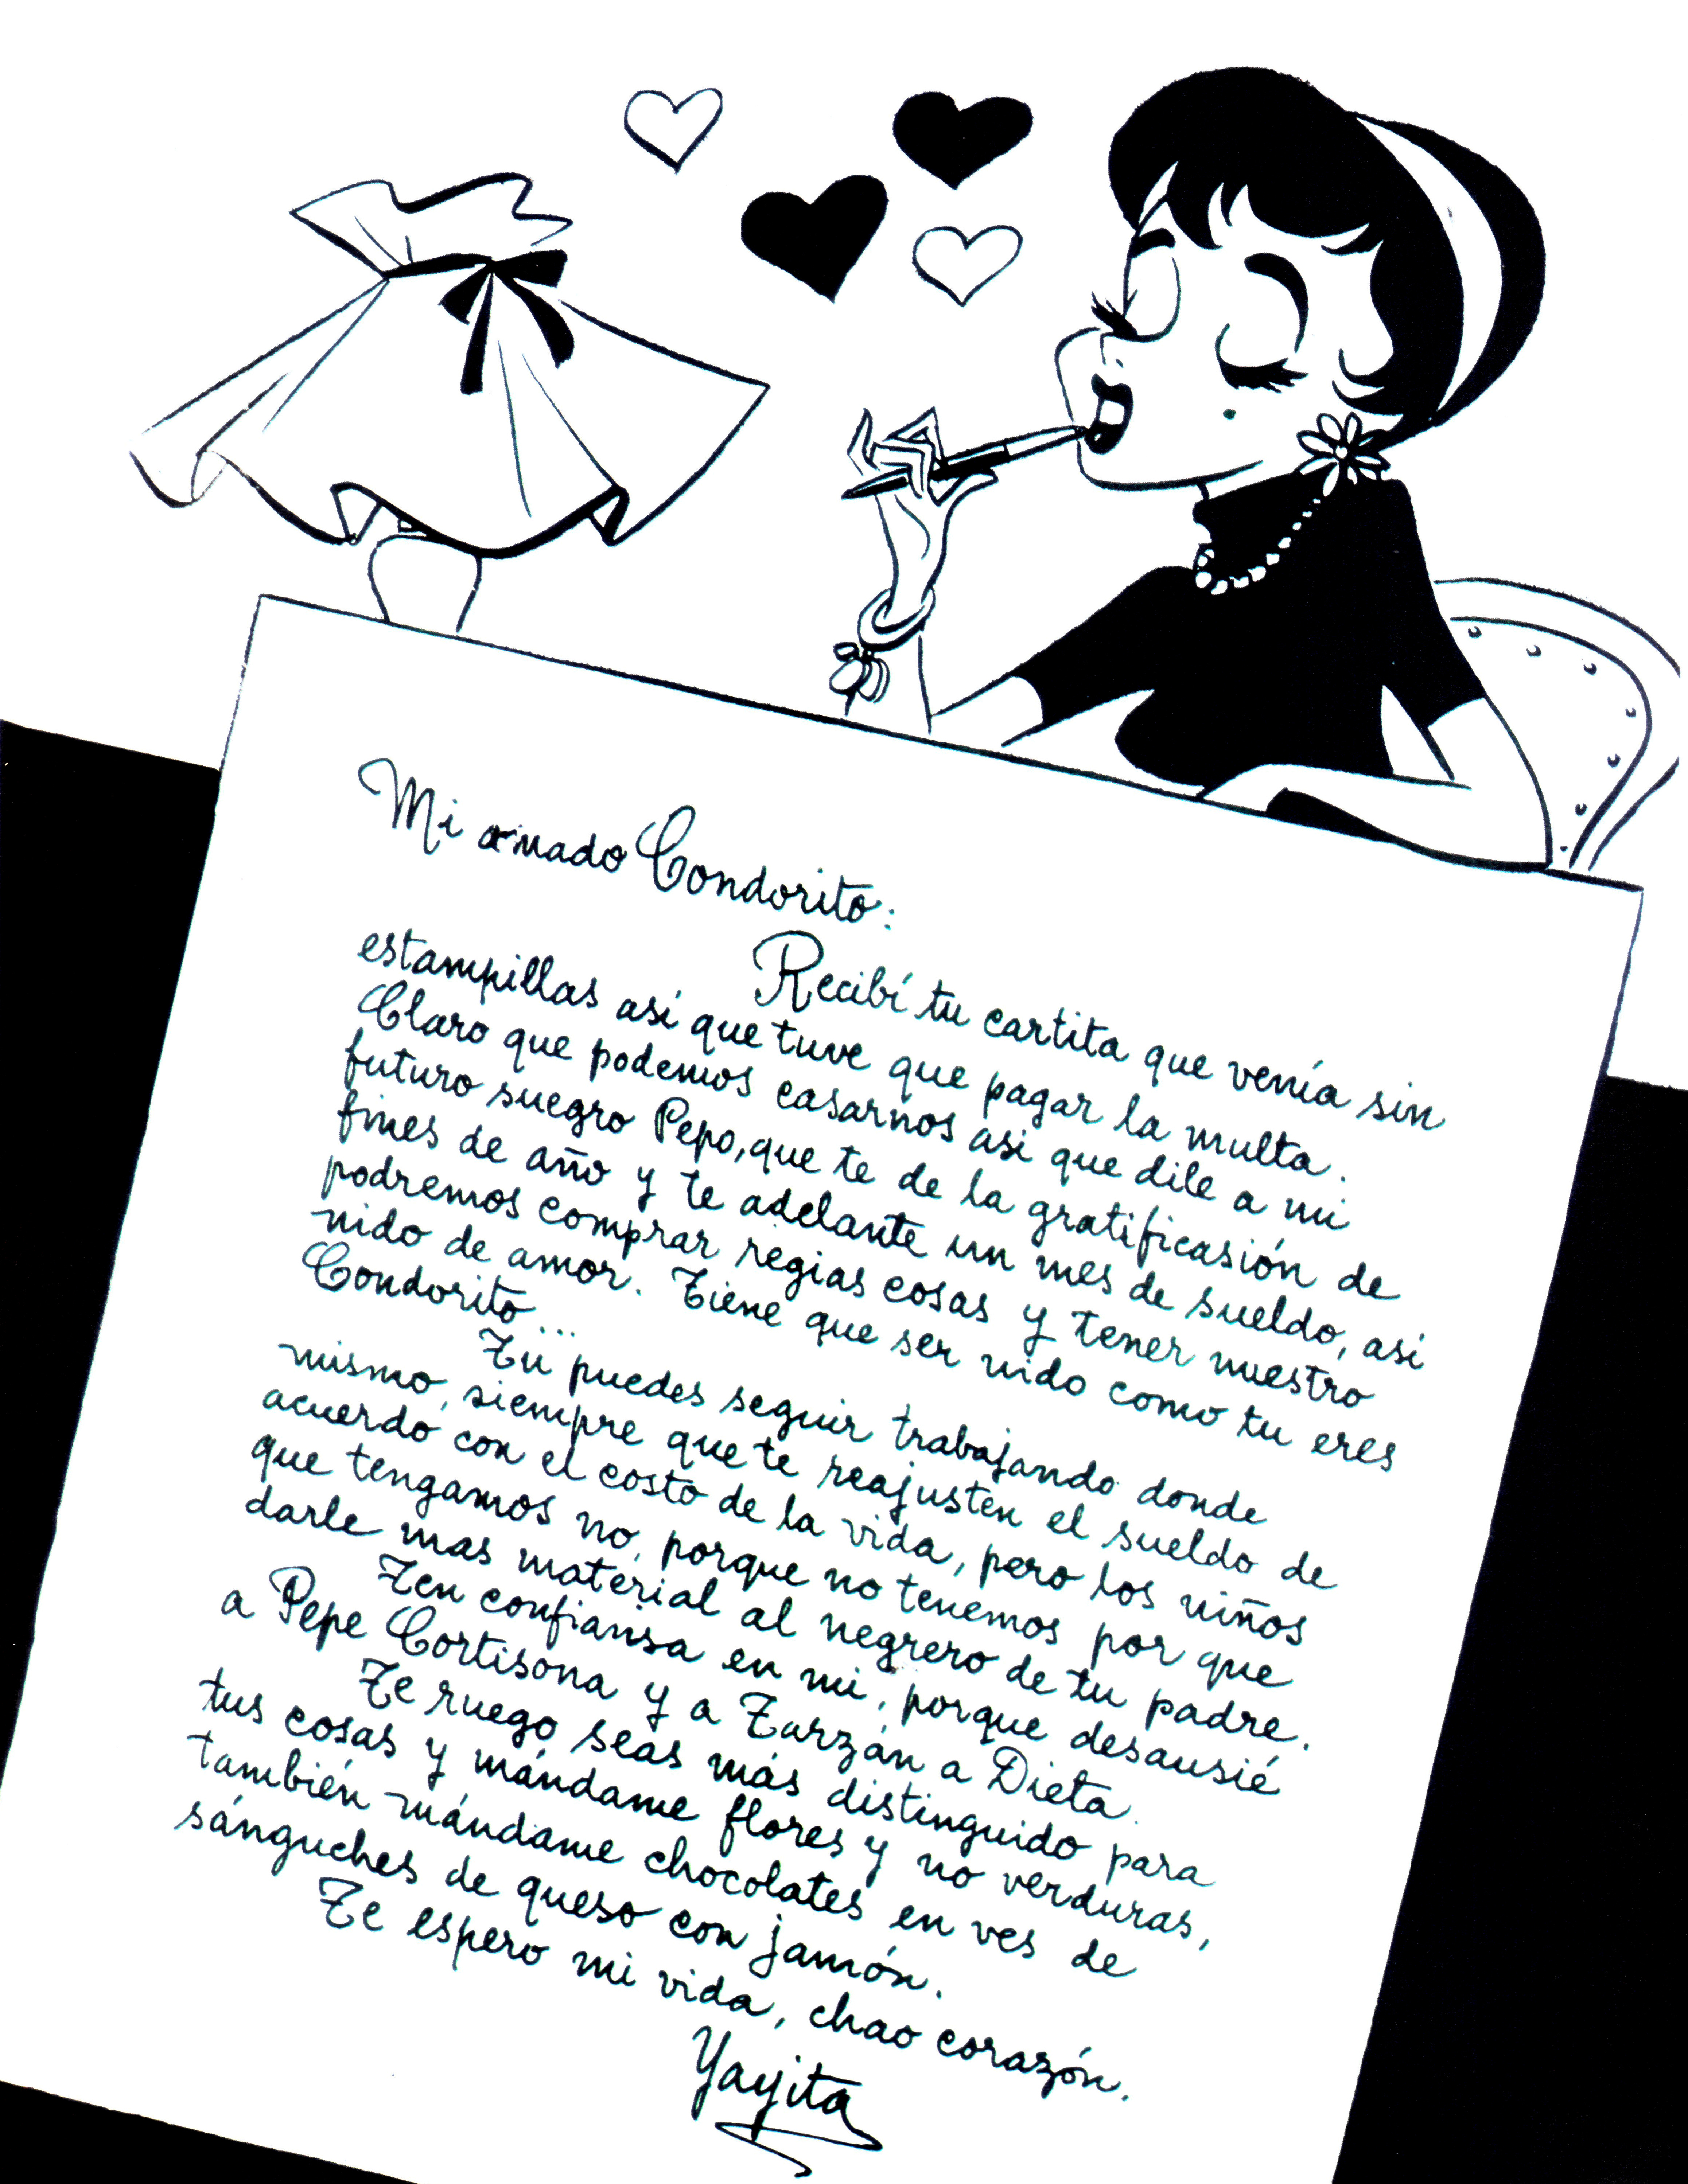 Mi amado Condorito:
Recibí tu cartita que venía sin
estampillas así que tuve que pagar la multa.
Claro que podemos casarnos asi que dile a mi
futuro suegro Pepo, que te de la gratificasión de
fines de año y te adelante un mes de sueldo, asi
podremos comprar regias cosas y tener nuestro
nido de amor. Tiene que ser nido como tu eres
Condorito...
Tú puedes seguir trabajando donde
mismo, siempre que te reajusten el sueldo de
acuerdo con el costo de la vida, pero los niños
que tengamos no, porque no tenemos por que
darle mas material al negrero de tu padre.
Ten confiansa en mi, porque desausié
a Pepe Cortisona y a Tarzán a Dieta.
Te ruego seas más distinguido para
tus cosas y mándame flores y no verduras,
también mándame chocolates en ves de
sánguches de queso con jamón.
Te espero mi vida, chao corazón.
Yayita